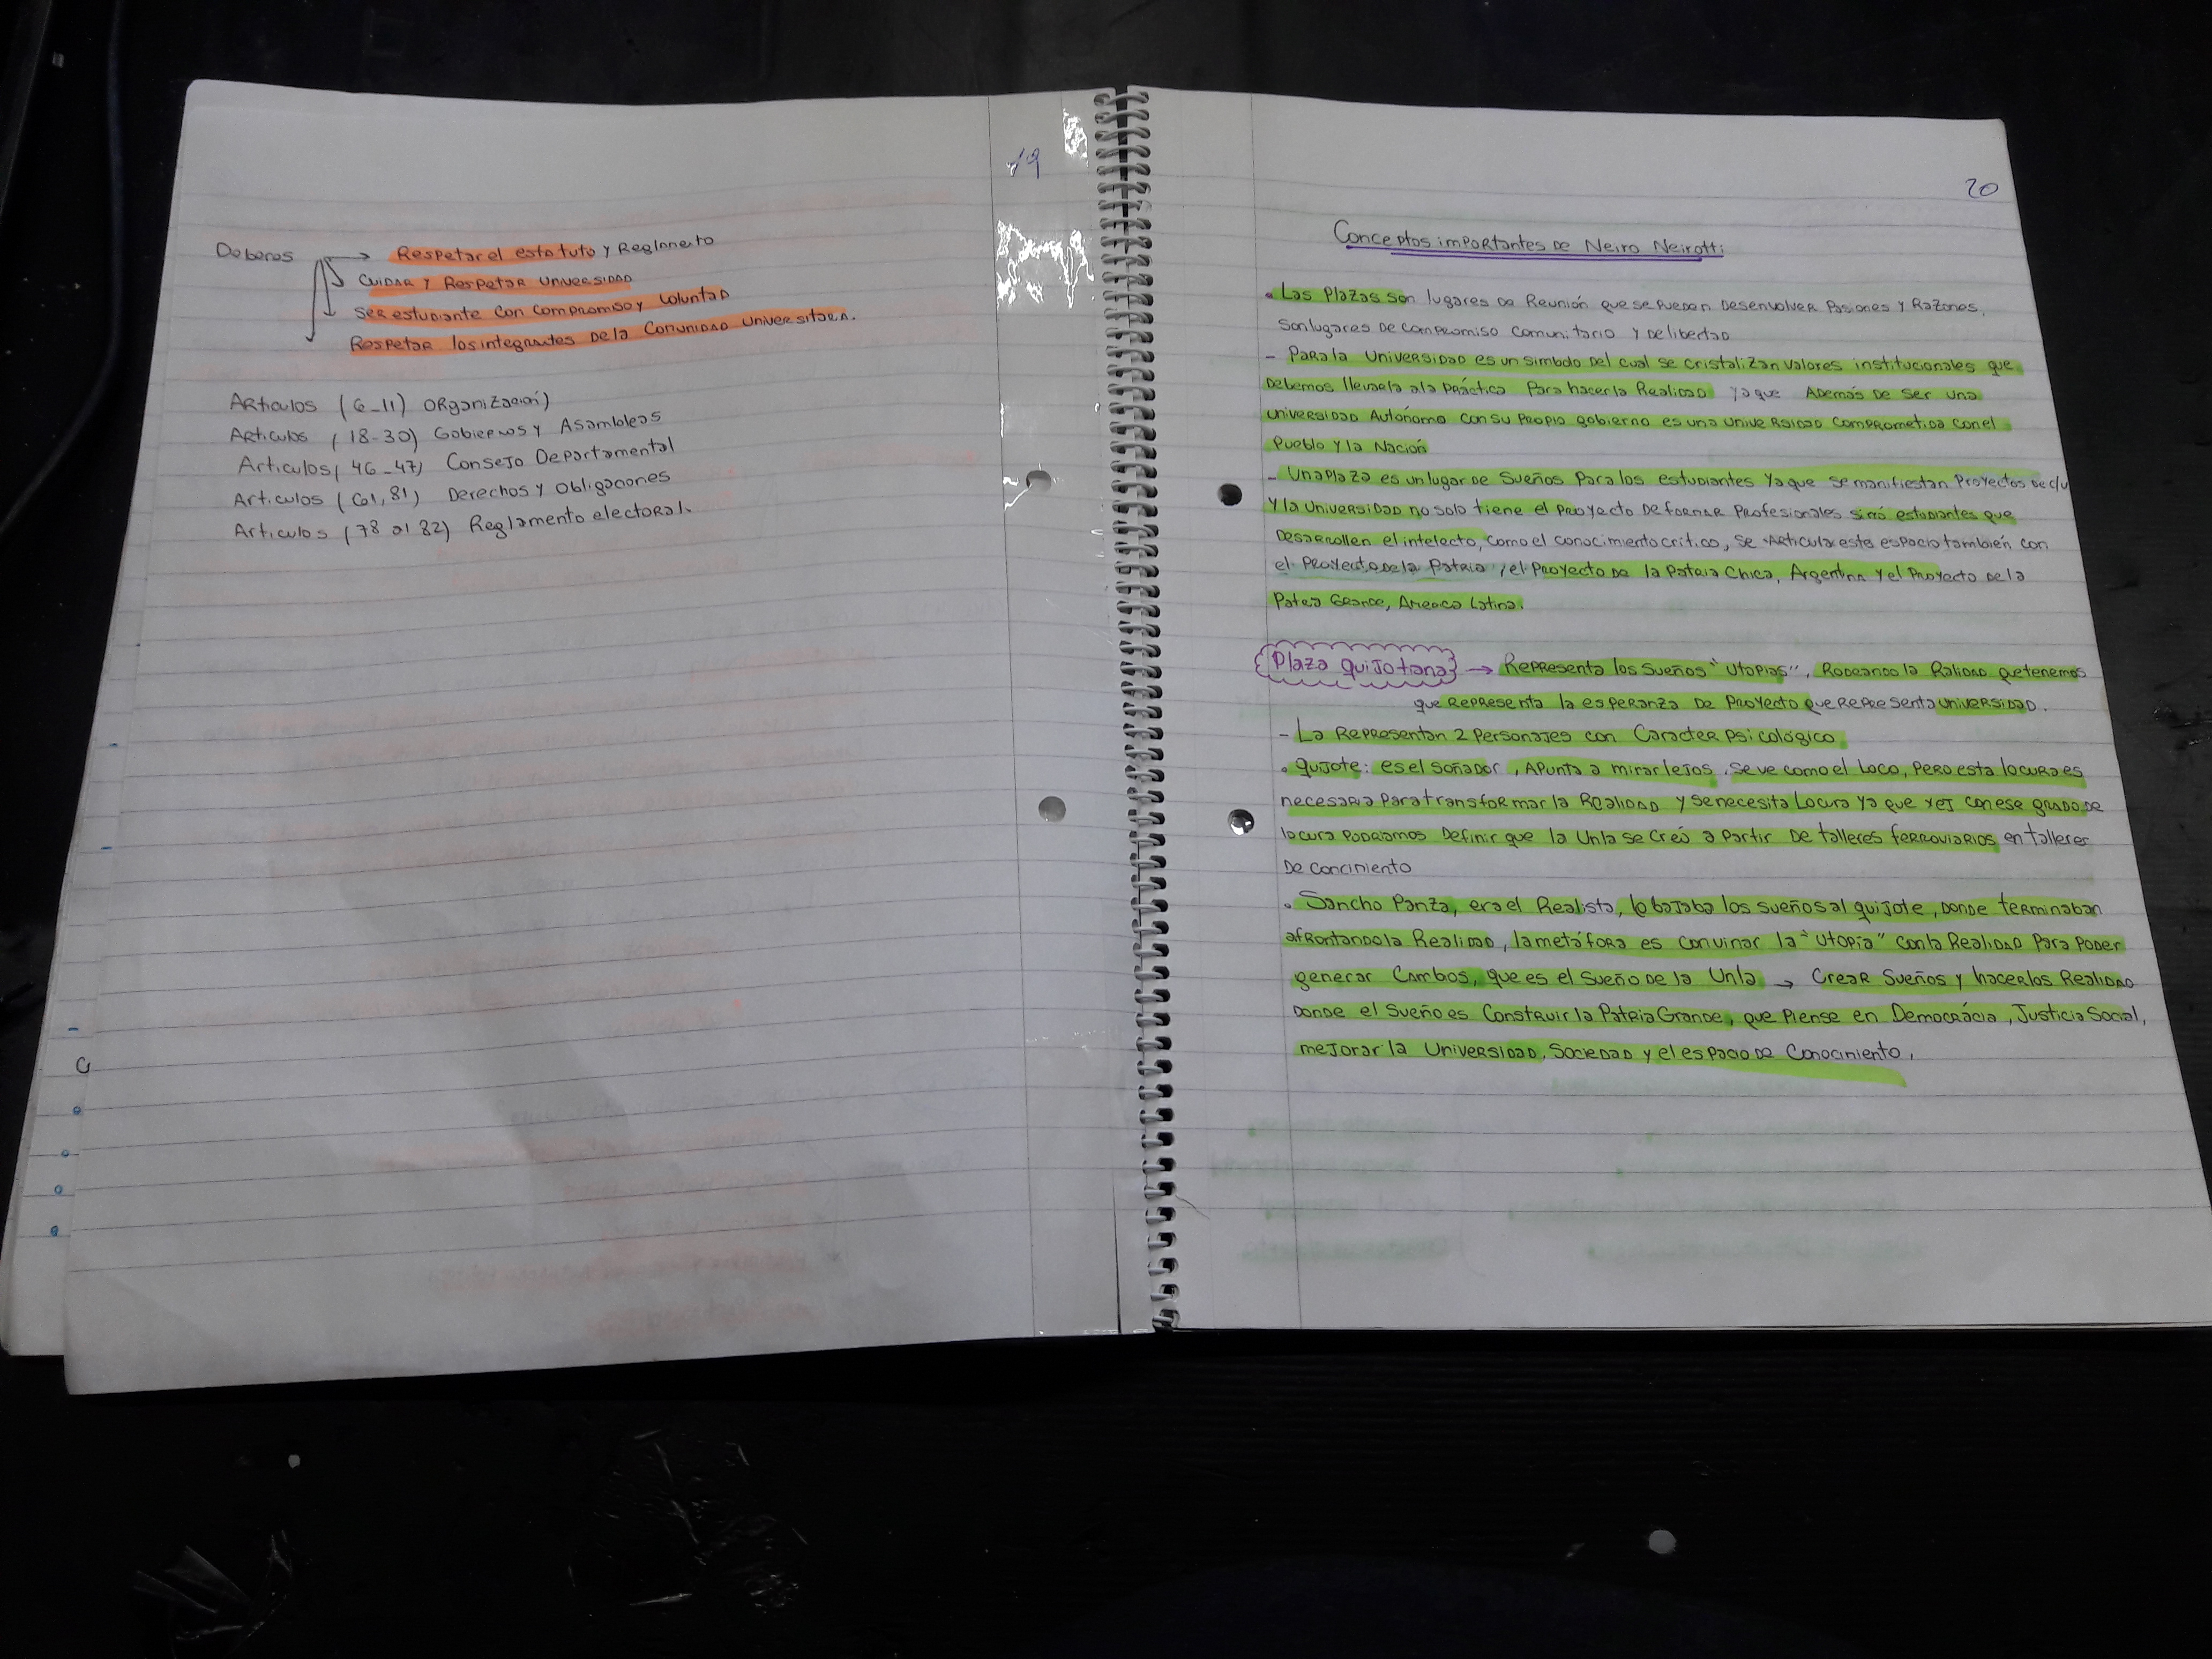 19
Deberes → Respetar el estatuto y Reglaneto
Cuidar y Respetar Universidad
Ser estudiante con compromiso y Voluntad
Respetar los integrantes de la Comunidad Universitaria.
Articulos (6-11) Organización)
Articulos (18-30) Gobiernos y Asambleas
Articulos (46-47) Consejo Departamental
Articulos (61,81) Derechos y Obligaciones
Articulos (78 al 82) Reglamento electoral.
20
Conceptos importantes de Neiro Neirotti
• Las Plazas son lugares de Reunión que se pueden Desenvolver Pasiones y Razones,
Son lugares de compromiso comunitario y de libertad
- Para la Universidad es un simbolo del cual se cristalizan valores institucionales que
debemos llevarla a la práctica para hacerla Realidad ya que Además de ser una
universidad Autónoma con su propio gobierno es una universidad comprometida con el
Pueblo y la Nación
- Una plaza es un lugar de Sueños Para los estudiantes ya que se manifiestan Proyectos de c/u
y la Universidad no solo tiene el proyecto de formar profesionales sinó estudiantes que
Desarrollen el intelecto, como el conocimiento crítico, se Articula este espacio también con
el Proyecto de la Patria, el Proyecto de la Patria Chica, Argentina y el Proyecto de la
Patria Grande, America Latina.
Plaza quijotana → Representa los Sueños "Utopias", Rodeando la Ralidad que tenemos
que representa la esperanza de Proyecto que representa universidad.
- La Representan 2 Personajes con Caracter psicológico.
• Quijote: es el soñador, Apunta a mirar lejos, se ve como el loco, pero esta locura es
necesaria para transformar la Realidad y se necesita Locura ya que con ese grado de
locura podriamos Definir que la Unla se creó a partir de talleres ferroviarios en talleres
de concimiento
• Sancho Panza, era el Realista, lo bajaba los sueños al quijote, donde terminaban
afrontando la Realidad, la metáfora es convinar la "Utopía" con la Realidad Para Poder
generar Cambos, que es el Sueño de la Unla → Crear Sueños y hacerlos Realidad
donde el Sueño es Construir la Patria Grande, que Piense en Democrácia, Justicia Social,
mejorar la Universidad, Sociedad y el espacio de Conocimiento.